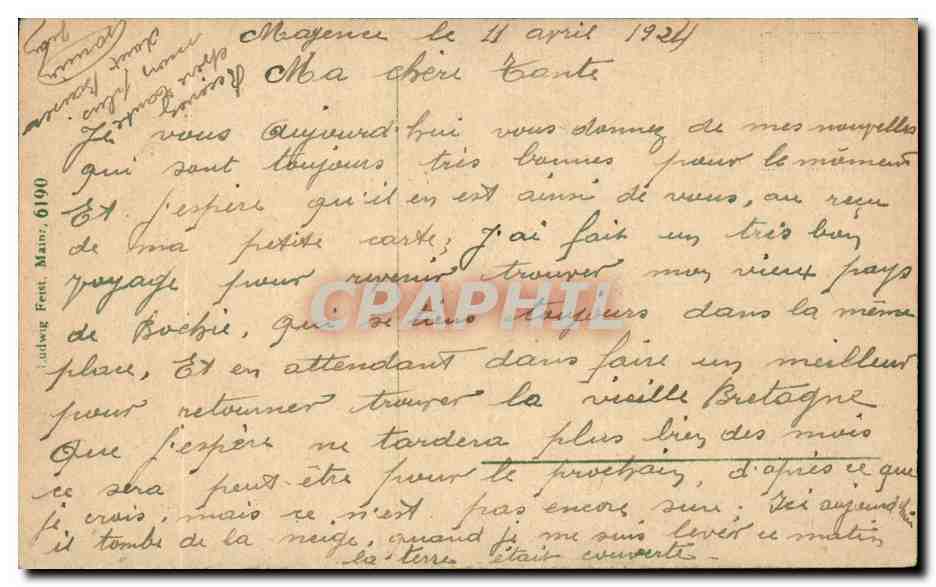 Mayence le 11 avril 1924
Ma chère Tante
Je vous aujourd'hui vous donnez de mes nouvelles
qui sont toujours très bonnes pour le moment
Et j'espère qu'il en est ainsi de vous, au reçu
de ma petite carte; J'ai fait un très bon
voyage pour revenir trouver mon vieux pays
de Bochie, qui se tiens toujours dans la même
place, Et en attendant dans faire un meilleur
pour retourner trouver la vieille Bretagne
Que j'espère ne tardera plus bien des mois
ce sera peut-être pour le prochain, d'après ce que
je crois, mais ce n'est pas encore sure. Ici aujourd'hui
il tombe de la neige, quand je me suis lever ce matin
la terre était couverte -
Recevez
chère Tante
mon plus
doux baiser
Ludwig Feist, Mainz, 6190
CPAPHIL